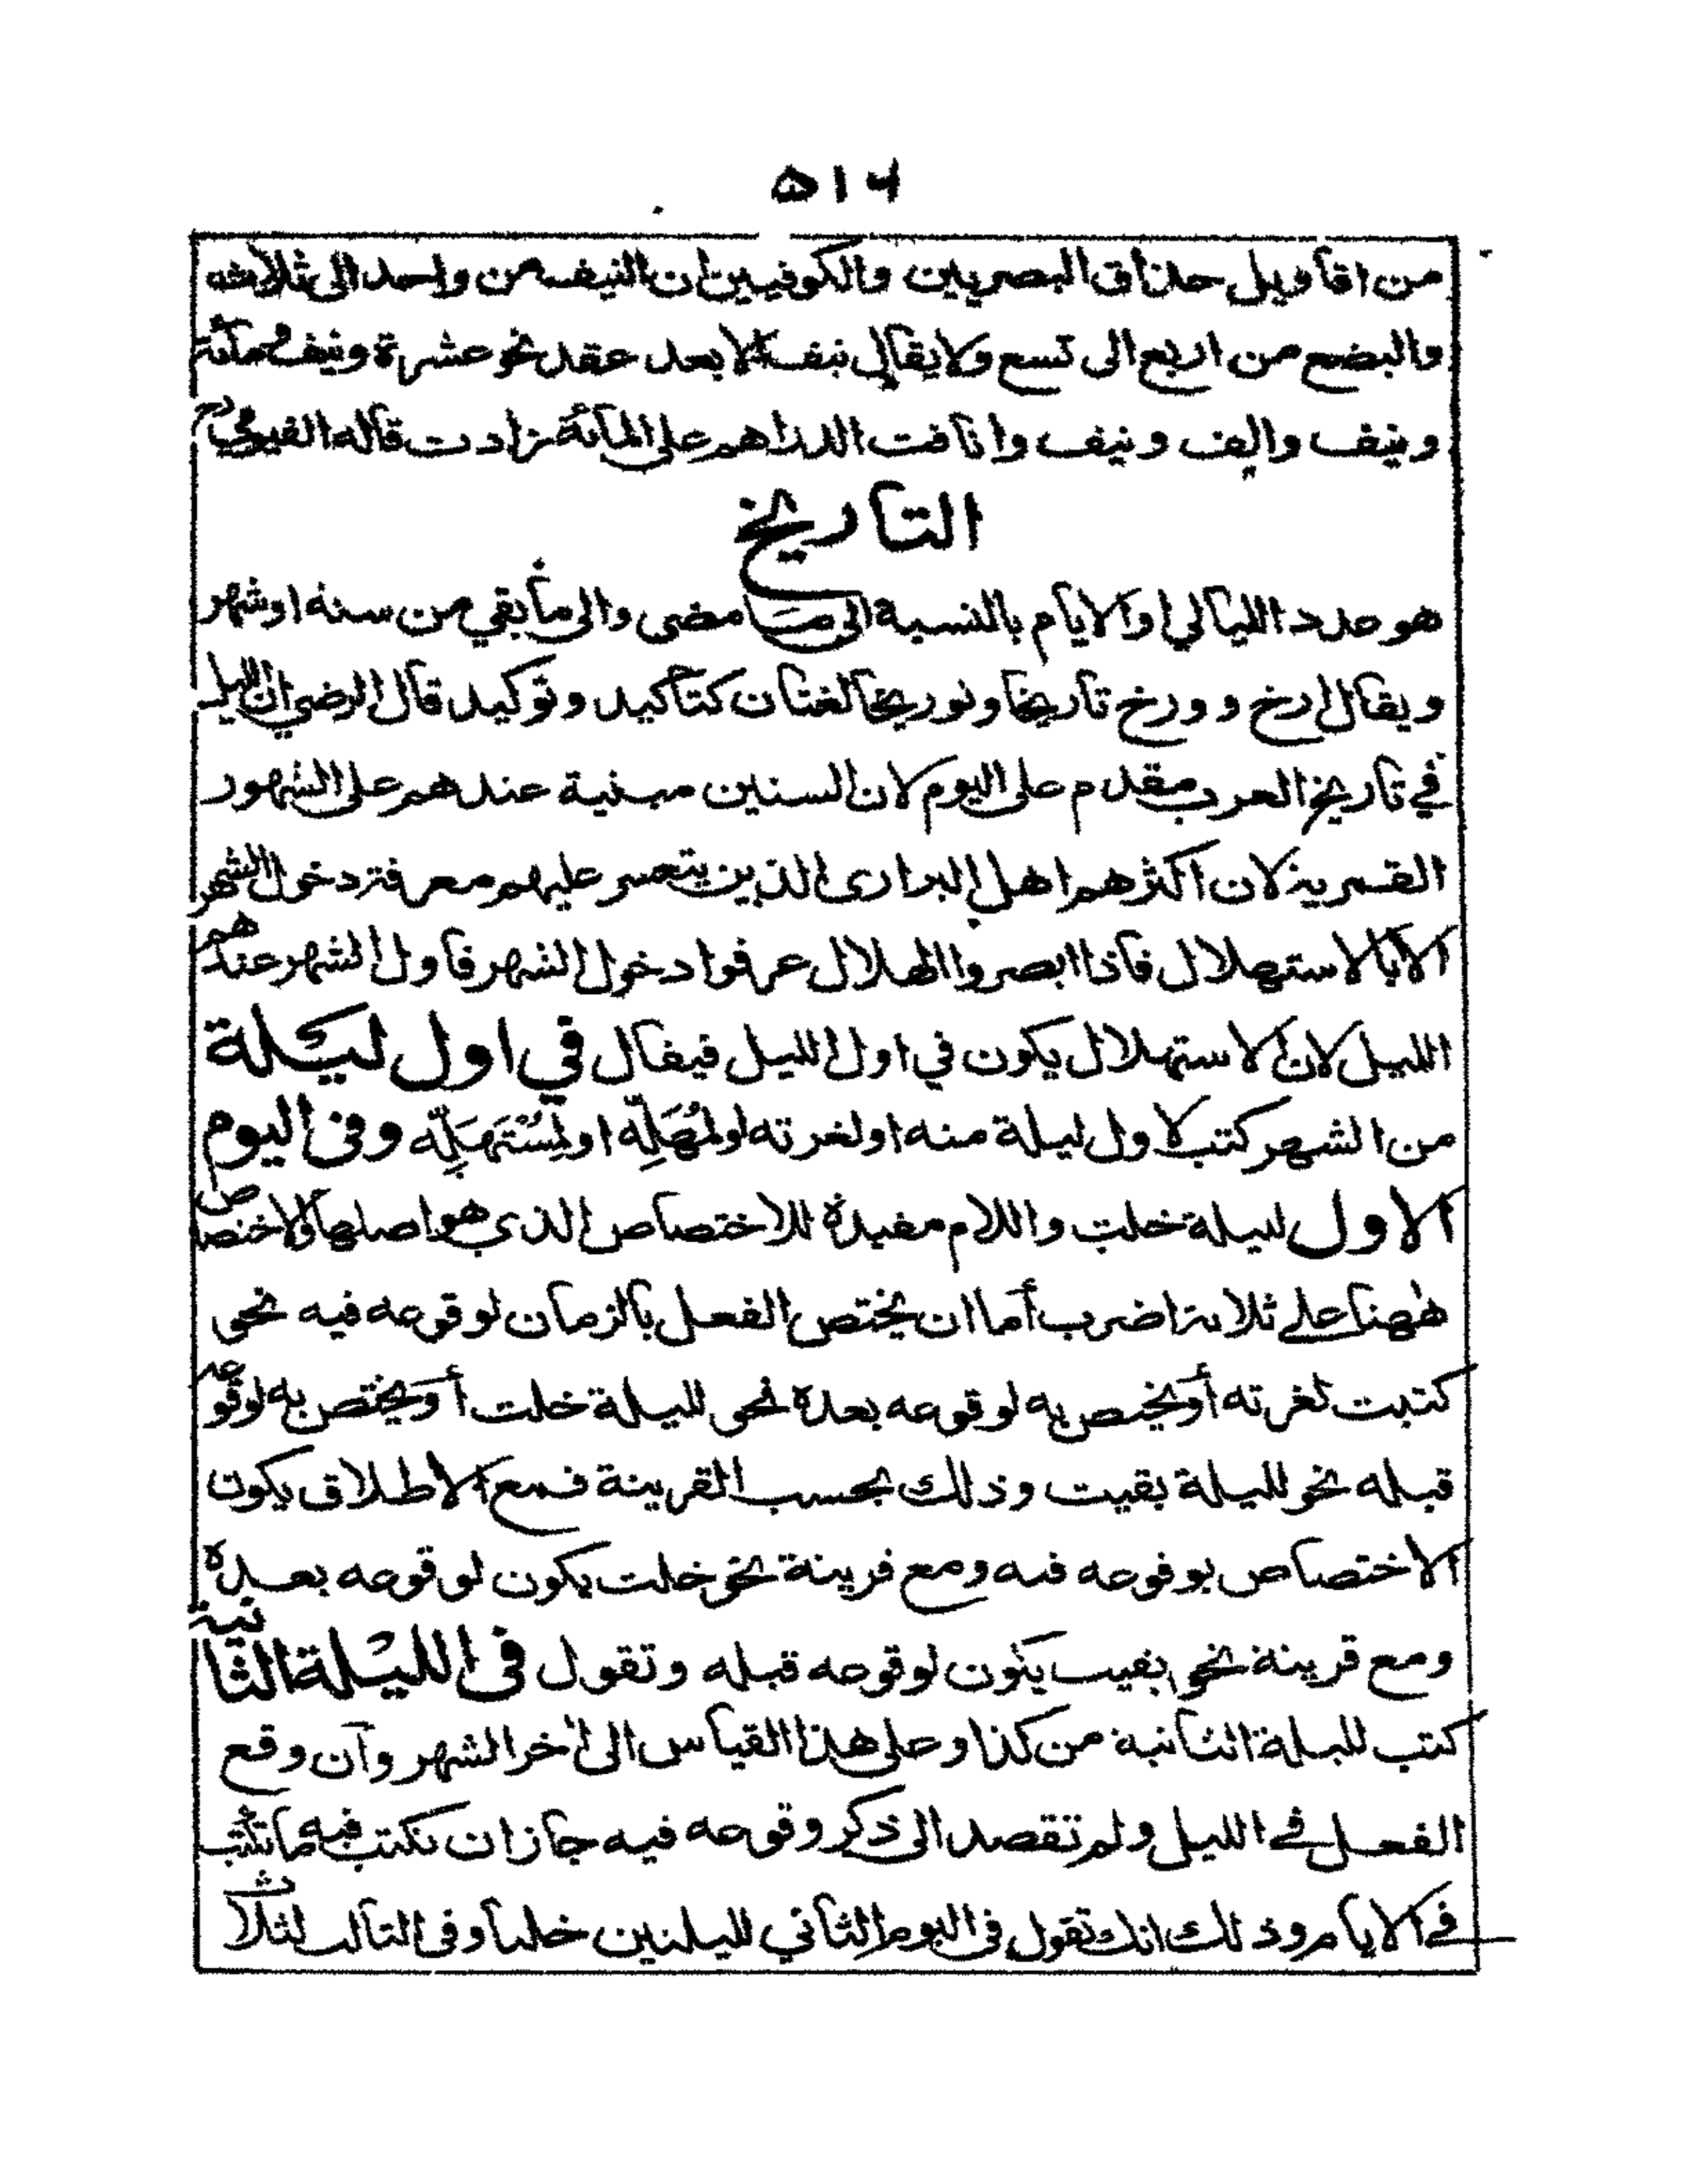 ٥١٤
من اقاويل حذاق البصريين والكوفيين ان النيف من واحد الى ثلاثه
والبضع من اربع الى تسع ولا يقال نيف الا بعد عقد نحو عشرة ونيف ومائة
ونيف والف ونيف وانافت الدراهم على المائة زادت قاله الفيومي رح
التاريخ
هو عدد الليالي او الايام بالنسبة الى ما مضى والى ما بقي من سنه او شهر
ويقال ارخ و ورخ تاريخا وتوريخا لغتان كتأكيد وتوكيد قال الرضي ان الليل
في تاريخ العرب مقدم على اليوم لان السنين مبنية عندهم على الشهور
القمرية لان اكثرهم اهل البرارى الذين يتعسر عليهم معرفة دخول الشهر
الا بالاستهلال فاذا ابصروا الهلال عرفوا دخول الشهر فاول الشهر عندهم
الليل لان الاستهلال يكون في اول الليل فيقال في اول ليلة
من الشهر كتب لاول ليلة منه او لغرته او لمُهَلِّه او لمُسْتَهَلِّه وفى اليوم
الاول لليلة خلت واللام مفيدة للاختصاص الذي هو اصلها والاختصاص
ههنا على ثلاثة اضرب أما ان يختص الفعل بالزمان لوقوعه فيه نحو
كتبت لغرته أو يختص به لوقوعه بعده نحو لليلة خلت أو يختص به لوقوعه
قبله نحو لليلة بقيت وذلك بحسب القرينة فمع الاطلاق يكون
الاختصاص بوقوعه فيه ومع قرينة نحو خلت يكون لوقوعه بعده
ومع قرينة نحو بقيت يكون لوقوعه قبله وتقول فى الليلة الثانية
كتب لليلة الثانية من كذا وعلى هذا القياس الى اخر الشهر وان وقع
الفعل في الليل ولم تقصد الى ذكر وقوعه فيه جاز ان تكتب فيه ما تكتب
في الايام وذلك انك تقول فى اليوم الثاني لليلتين خلتا وفى الثالث لثلاث